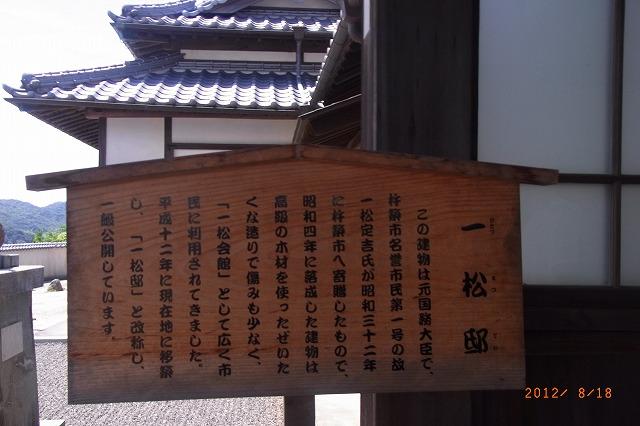 一松邸
ひとつ まつ てい
この建物は元国務大臣で、
杵築市名誉市民第一号の故
一松定吉氏が昭和三十二年
に杵築市へ寄贈したもので、
昭和四年に落成した建物は
高級の木材を使ったぜいた
くな造りで傷みも少なく、
「一松会館」として広く市
民に利用されてきました。
平成十二年に現在地に移築
し、「一松邸」と改称し、
一般公開しています。
2012/ 8/18